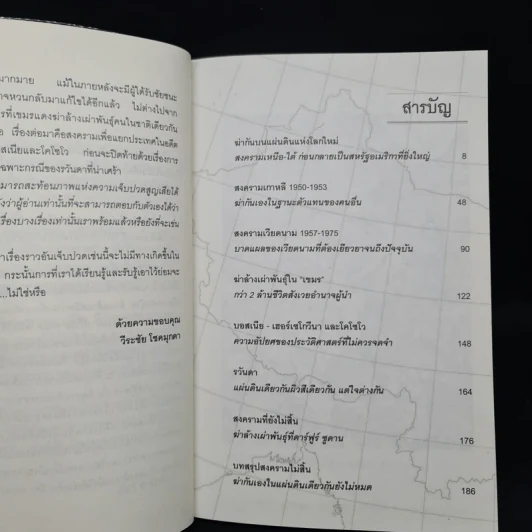 มากมาย แม้ในภายหลังจะมีผู้ได้รับชัยชนะ
จหวนกลับมาแก้ไขได้อีกแล้ว ไม่ต่างไปจาก
รที่เขมรแดงฆ่าล้างเผ่าพันธุ์คนในชาติเดียวกัน
เรื่องต่อมาคือสงครามเพื่อแยกประเทศในอดีต
สเนียและโคโซโว ก่อนจะปิดท้ายด้วยเรื่องการ
ฉพาะกรณีของรวันดาที่น่าเศร้า
มารถสะท้อนภาพแห่งความเจ็บปวดสูญเสียได้
ังว่าผู้อ่านเท่านั้นที่จะสามารถตอบกับตัวเองได้ว่า
เรื่องบางเรื่องเท่านั้นเราพร้อมแล้วหรือยังที่จะเช่น
าเรื่องราวอันเจ็บปวดเช่นนี้จะไม่มีทางเกิดขึ้นใน
กระนั้นการที่เราได้เรียนรู้และรับรู้เอาไว้ย่อมจะ
...ไม่ใช่หรือ
ด้วยความขอบคุณ
วีระชัย โชคมุกดา
สารบัญ
ฆ่ากันบนแผ่นดินแห่งโลกใหม่
สงครามเหนือ-ใต้ ก่อนกลายเป็นสหรัฐอเมริกาที่ยิ่งใหญ่ 8
สงครามเกาหลี 1950-1953
ฆ่ากันเองในฐานะตัวแทนของคนอื่น 48
สงครามเวียดนาม 1957-1975
บาดแผลของเวียดนามที่ต้องเยียวยาจนถึงปัจจุบัน 90
ฆ่าล้างเผ่าพันธุ์ใน "เขมร"
กว่า 2 ล้านชีวิตสังเวยอำนาจผู้นำ 122
บอสเนีย - เฮอร์เซโกวีนา และโคโซโว
ความอัปยศของประวัติศาสตร์ที่ไม่ควรจดจำ 148
รวันดา
แผ่นดินเดียวกันผิวสีเดียวกัน แต่ใจต่างกัน 164
สงครามที่ยังไม่สิ้น
ฆ่าล้างเผ่าพันธุ์ที่ดาร์ฟูร์ ซูดาน 176
บทสรุปสงครามไม่สิ้น
ฆ่ากันเองในแผ่นดินเดียวกันยังไม่หมด 186